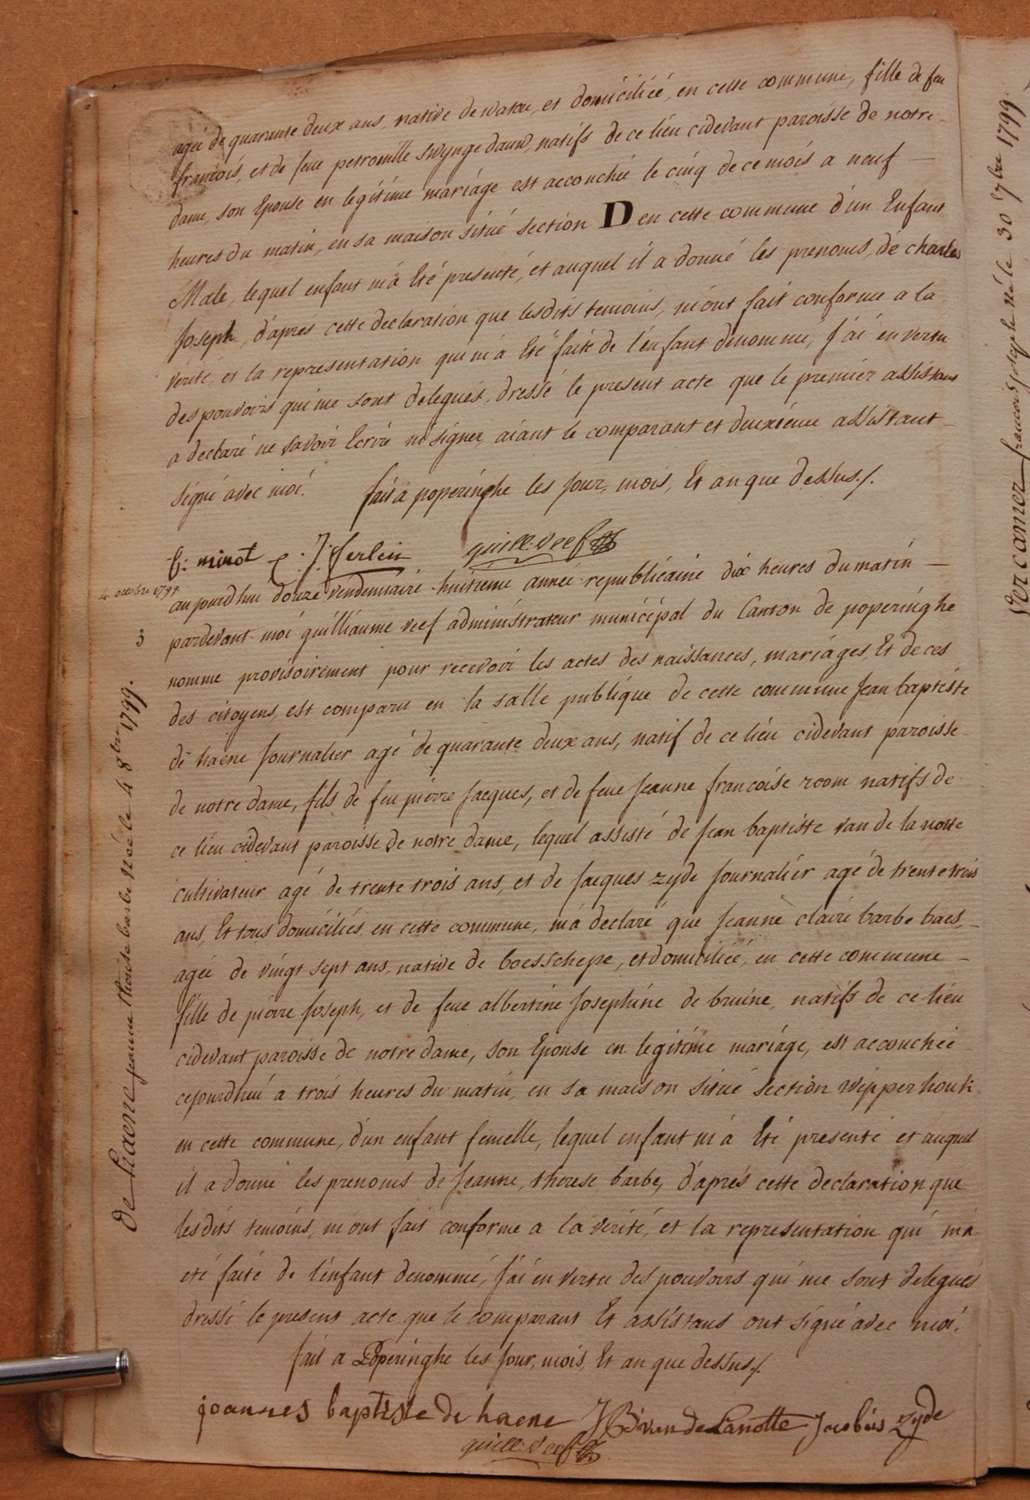 agée de quarante deux ans, native de watou, et domiciliée, en cette commune, fille de feu
francois, et de feue petronille swyngedauw, natifs de ce lieu cidevant paroisse de notre
dame, son Epouse en legitime mariage est accouchée le cinq de ce mois a neuf
heures du matin, en sa maison situé section D en cette commune d'un Enfant
Male, lequel enfant m'a Eté presenté, et auquel il a donné les prenoms, de charles
Joseph, d'apres cette declaration que lesdits temoins, m'ont fait conforme a la
verité, et la representation qui m'a Eté faite de l'enfant denommé, J'ai en vertu
des pouvoirs qui me sont delegués, dressé le present acte que le premier assistant
a declaré ne savoir Ecrire ni signer, aiant le comparant et deuxieme assistant
signé avec moi. fait a poperinghe les Jour, mois, Et an que dessus./.
E: minot J: ferlein guill: veef
4 octobre 1799
aujourdhui douze vendemiaire huitieme année republicaine dix heures du matin
3
pardevant moi guilliaume veef administrateur municipal du Canton de poperinghe
nomme provisoirement pour recevoir les actes des naissances, mariages Et deces
des citoyens, est comparu en la salle publique de cette commune Jean baptiste
de haene Journalier agé de quarante deux ans, natif de ce lieu cidevant paroisse
de notre dame, fils de feu pierre Jacques, et de feue Jeanne francoise room natifs de
ce lieu cidevant paroisse de notre dame, lequel assisté de Jean baptiste van de lanotte
cultivateur agé de trente trois ans, et de Jacques zyde Journalier agé de trente trois
ans, Et tous domiciliés en cette commune, m'a declaré que Jeanne claire barbe baes,
agée de vingt sept ans, native de boesschepe, et domiciliée, en cette commune
fille de pierre Joseph, et de feue albertine Josephine de bruine, natifs de ce lieu
cidevant paroisse de notre dame, son Epouse en legitime mariage, est accouchée
cejourdhui a trois heures du matin, en sa maison situé section wipperhouk
en cette commune, d'un enfant femelle, lequel enfant m'a Eté presenté et auquel
il a donné les prenoms de Jeanne, therese barbe, d'aprés cette declaration que
lesdits temoins, m'ont fait conforme a la verité, et la representation qui m'a
eté faite de l'enfant denommé, J'ai en vertu des pouvoirs qui me sont delegués
dressé le present acte que le comparant Et assistans ont signé avec moi.
fait a Poperinghe les Jour, mois, Et an que dessus./.
joannes baptiste de haene J B van de Lanotte Jacobus zyde
guill: veef
De haene jeanne therese barbe née le 4 8bre 1799.
Vercamer francois joseph né le 30 7bre 1799.